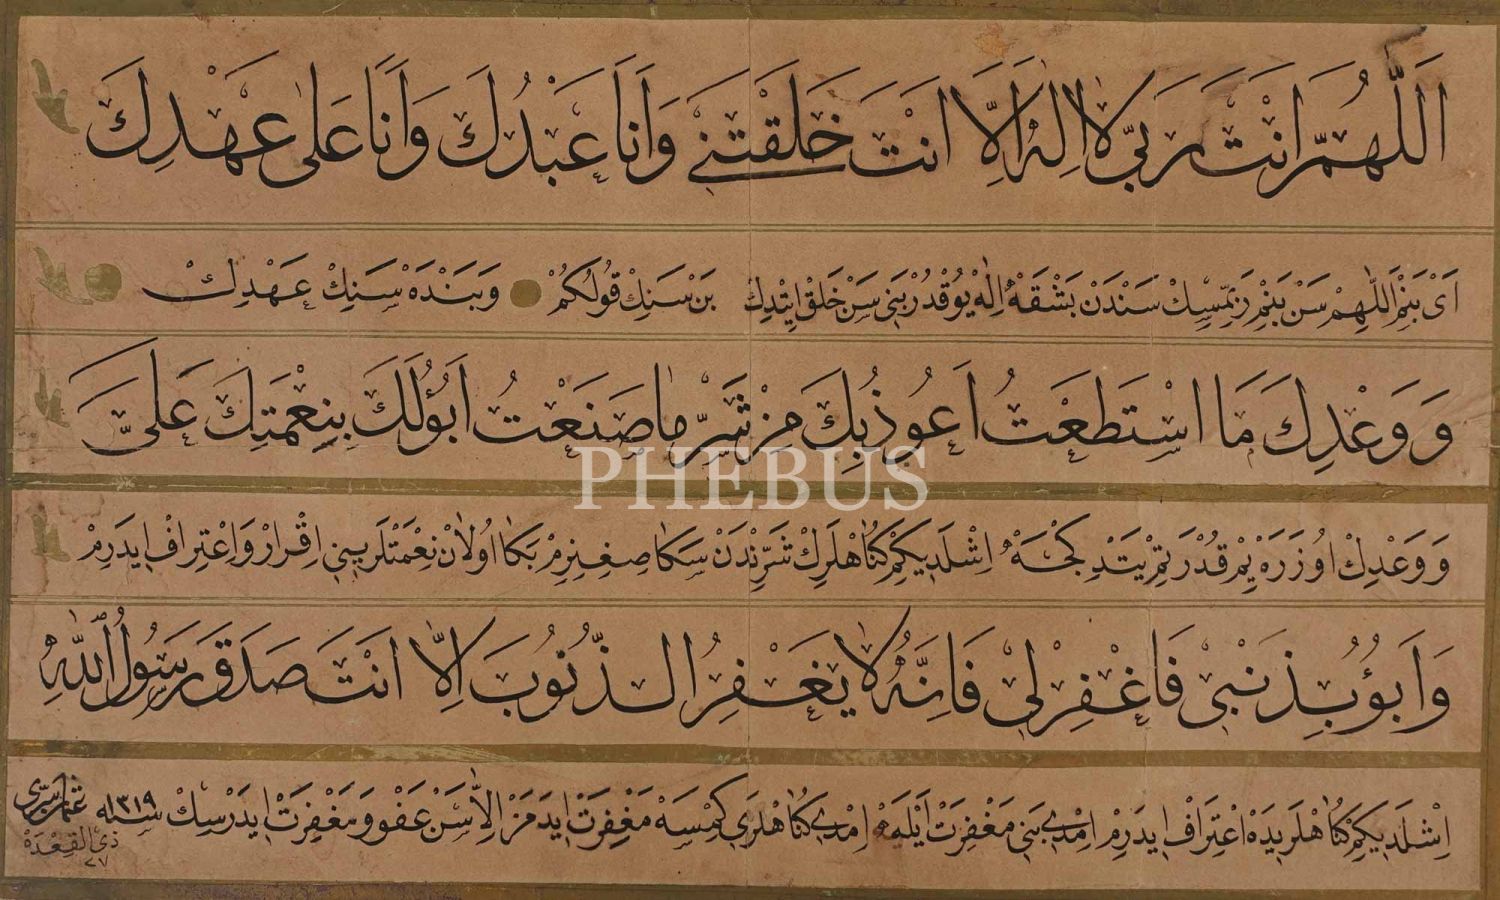 اَللّٰهُمَّ اَنْتَ رَبّٖى لَا اِلٰهَ اِلَّا اَنْتَ خَلَقْتَنٖى وَاَنَا عَبْدُكَ وَاَنَا عَلٰى عَهْدِكَ
اَىْ بَنِمْ اَللّٰهِمْ سَنْ بَنِمْ رَبِّمْسِڭْ سَنْدَنْ بَشْقَه اِلٰهْ يُوقْدُرْ بَنِى سَنْ خَلَقْ اِيتْدِڭْ بَنْ سَنِڭْ قُولُكُمْ وَبَنْدَه سَنِڭْ عَهْدِڭْ
وَوَعْدِكَ مَا اسْتَطَعْتُ اَعُوذُ بِكَ مِنْ شَرِّ مَا صَنَعْتُ اَبُوءُ لَكَ بِنِعْمَتِكَ عَلَىَّ
PHEBUS
وَوَعْدِڭْ اُوزَرَه يِمْ قُدْرَتِمْ يَتْدِكْجَه اِشْلَدِيكِمْ كُنَاهْلَرِڭْ شَرِّنْدَنْ سَكَا صِغِنِرِمْ بَكَا اُولَانْ نِعْمَتْلَرِيڭِى اِقْرَارْ وَاِعْتِرَافْ اِيدَرِمْ
وَاَبُوءُ بِذَنْبٖى فَاغْفِرْلٖى فَاِنَّهُ لَا يَغْفِرُ الذُّنُوبَ اِلَّا اَنْتَ صَدَقَ رَسُولُ اللّٰهِ
اِشْلَدِيكِمْ كُنَاهْلَرِيدَه اِعْتِرَافْ اِيدَرِمْ اِمْدِى بَنِى مَغْفِرَتْ اَيْلَه اِمْدِى كُنَاهْلَرِى كِمْسَه مَغْفِرَتْ اِيدَمَزْ اِلَّا سَنْ عَفْو وَمَغْفِرَتْ اِيدَرْسِڭْ سنه ١٣١٩
ذِى الْقَعْدَه
٢٧